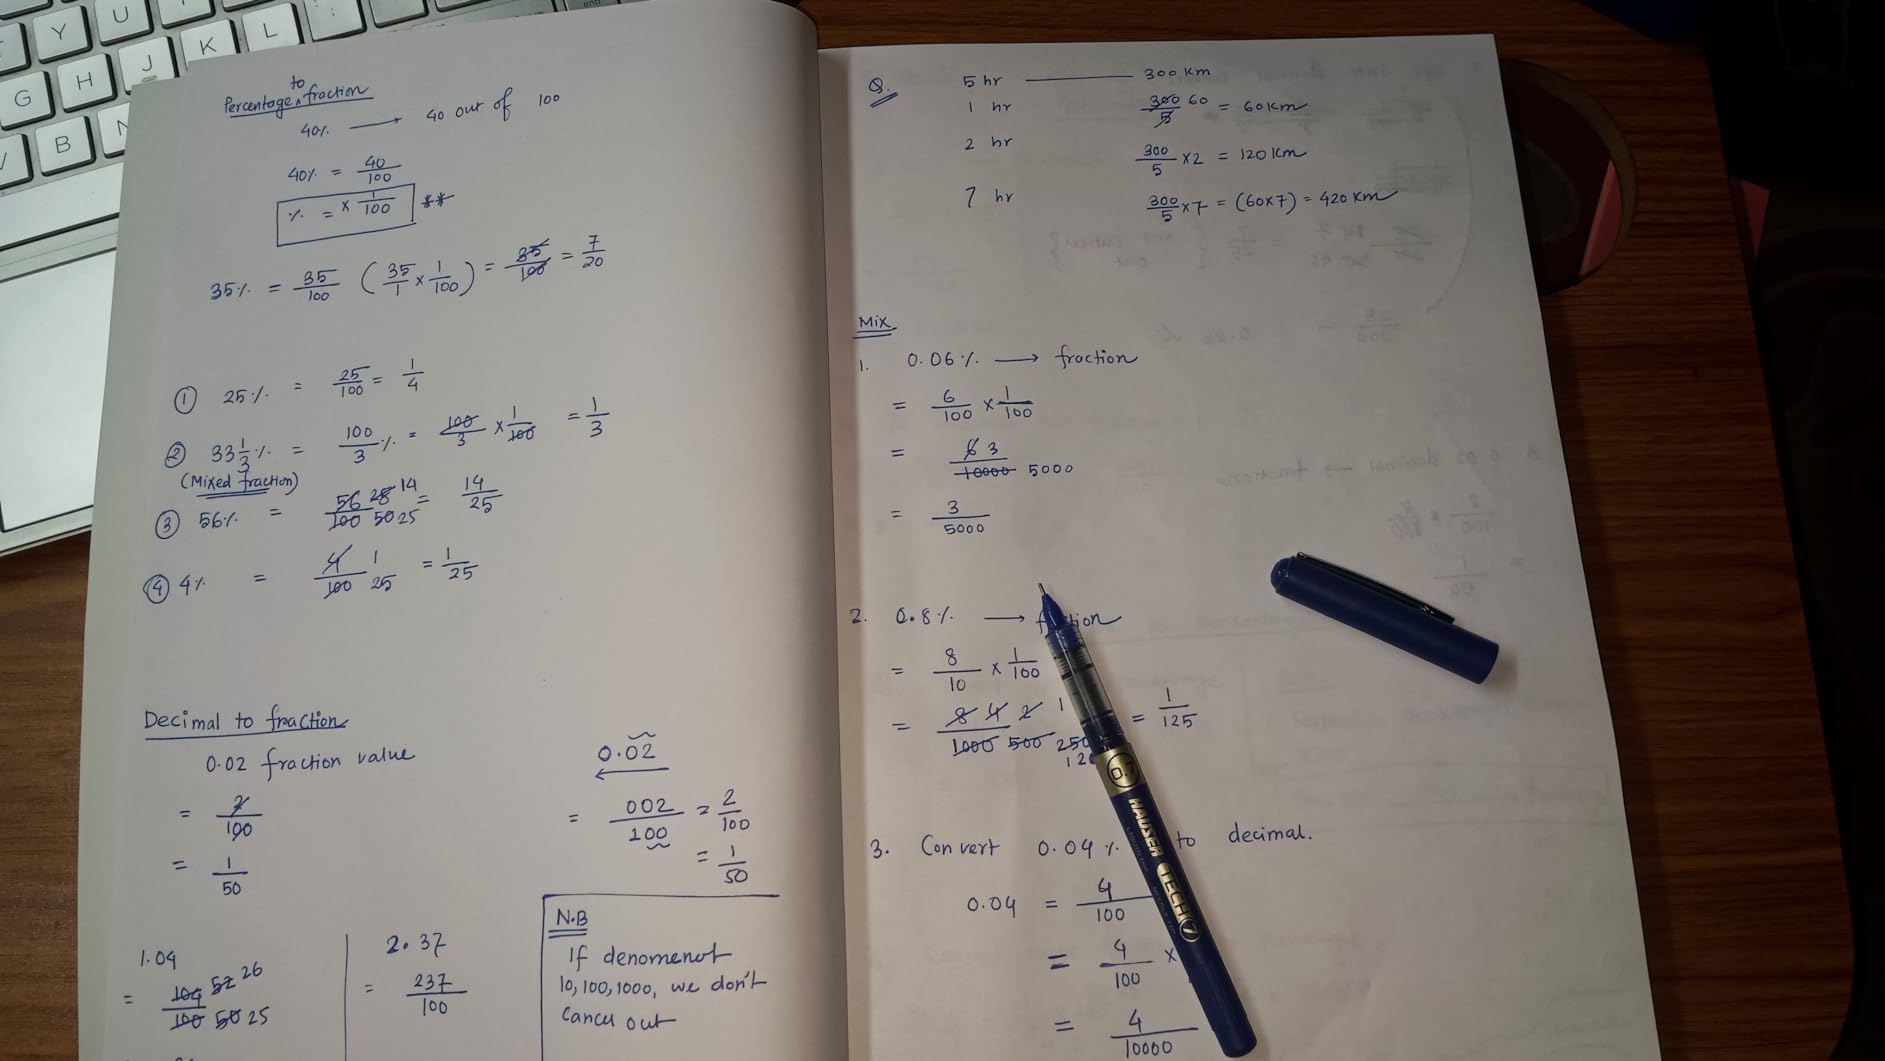 Y U
G H J K L
B N
Percentage to fraction
40% → 40 out of 100
40% = 40/100
% = × 1/100 **
35% = 35/100 (35/1 × 1/100) = 35/100 = 7/20
① 25% = 25/100 = 1/4
② 33 1/3 % = 100/3 % = 100/3 × 1/100 = 1/3
(Mixed fraction)
③ 56% = 56 28 14/100 50 25 = 14/25
④ 4% = 4 1/100 25 = 1/25
Decimal to fraction
0.02 fraction value
= 2/100
= 1/50
0.02
= 002/100 = 2/100
= 1/50
1.04
= 104 52 26/100 50 25
2.37
= 237/100
N.B
If denomenot
10,100,1000, we don't
cancel out
Q. 5 hr — 300 km
1 hr 300 60/5 = 60km
2 hr 300/5 ×2 = 120 km
7 hr 300/5 ×7 = (60×7) = 420 km
Mix
1. 0.06% → fraction
= 6/100 × 1/100
= 6 3/10000 5000
= 3/5000
2. 0.8% →
= 8/10 × 1/100
= 8 4 2 1/1000 500 250 = 1/125
3. Convert 0.04% to decimal.
0.04 = 4/100
= 4/100 ×
= 4/10000
0.7
HAUSER
TECH 7